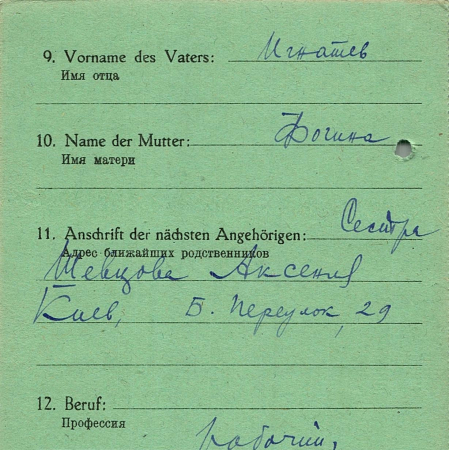 9. Vorname des Vaters: Игнатев
Имя отца
10. Name der Mutter: Фогина
Имя матери
11. Anschrift der nächsten Angehörigen: Сестра
Адрес ближайших родственников
Шевцова Аксения
Киев, Б. Переулок, 29
12. Beruf:
Профессия
рабочий,